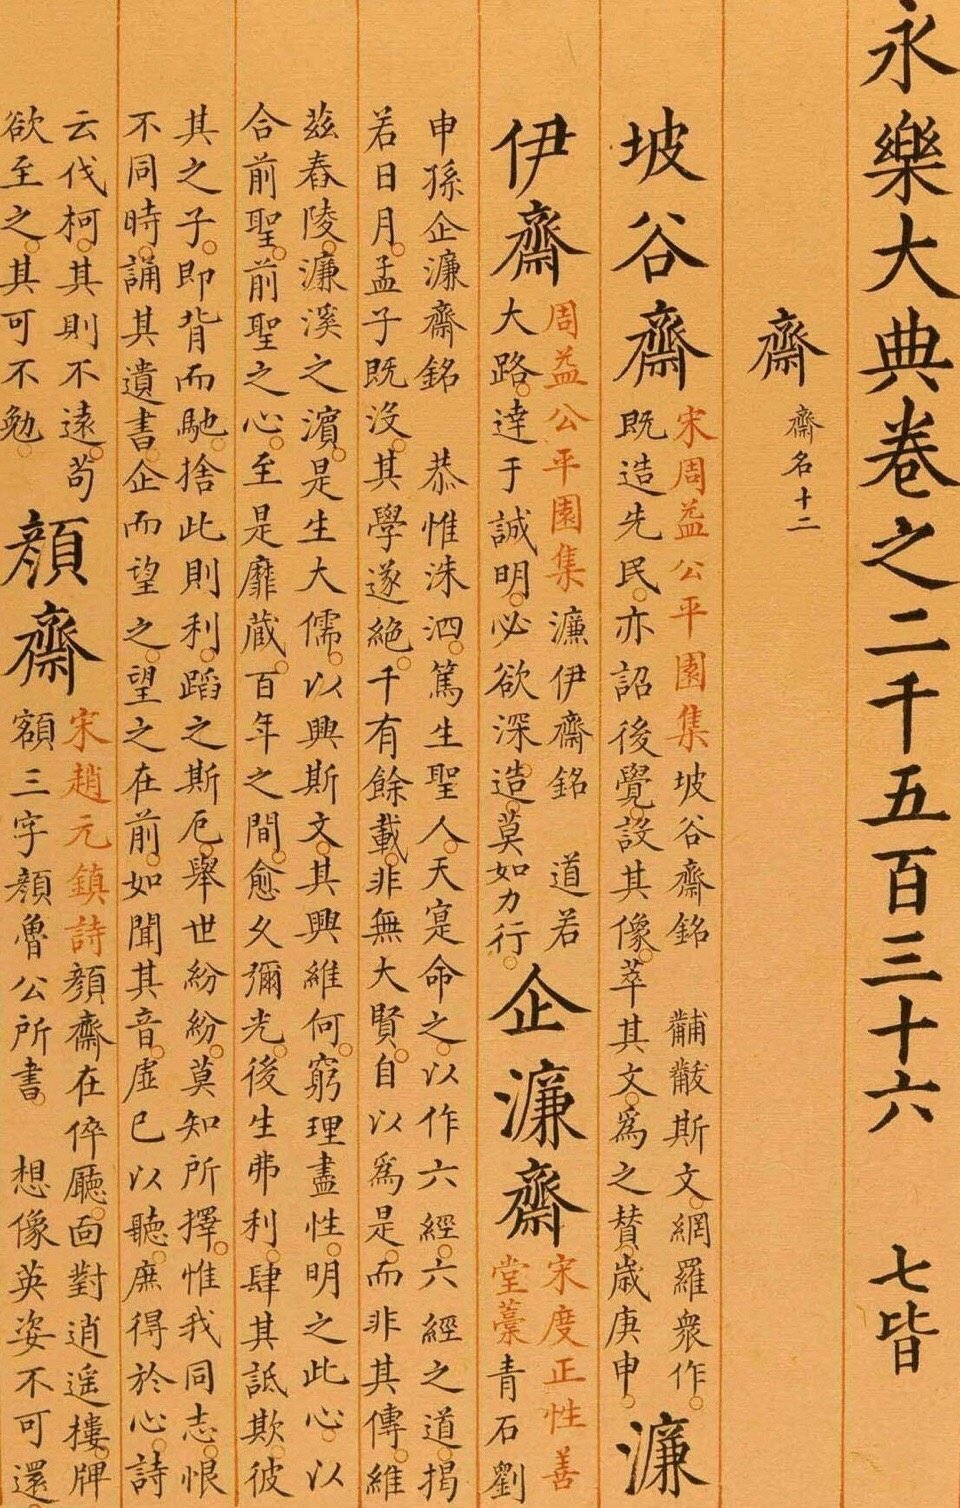 永樂大典卷之二千五百三十六 七皆
齋 齋名十二
坡谷齋
宋周益公平園集坡谷齋銘 黼黻斯文。網羅衆作。
既造先民。亦詔後覺。設其像。萃其文。爲之賛。歲庚申。
濂
伊齋
周益公平園集濂伊齋銘 道若
大路。逹于誠明。必欲深造。莫如力行。
企濂齋
宋度正性善
堂藁青石劉
申孫企濂齋銘 恭惟洙泗。篤生聖人。天寔命之。以作六經。六經之道。揭
若日月。孟子既沒。其學遂絕。千有餘載。非無大賢。自以爲是。而非其傳。維
茲舂陵。濂溪之濵。是生大儒。以興斯文。其興維何。窮理盡性。明之此心。以
合前聖。前聖之心。至是靡蔵。百年之間。愈乆彌光。後生弗利。肆其詆欺。彼
其之子。即背而馳。捨此則利。蹈之斯厄。舉世紛紛。莫知所擇。惟我同志。恨
不同時。誦其遺書。企而望之。望之在前。如聞其音。虛已以聽。庶得於心。詩
云伐柯。其則不遠。茍
欲至之。其可不勉。
顏齋
宋趙元鎮詩顏齋在倅廳。靣對逍遙樓。牌
額三字顏魯公所書。 想像英姿不可還。